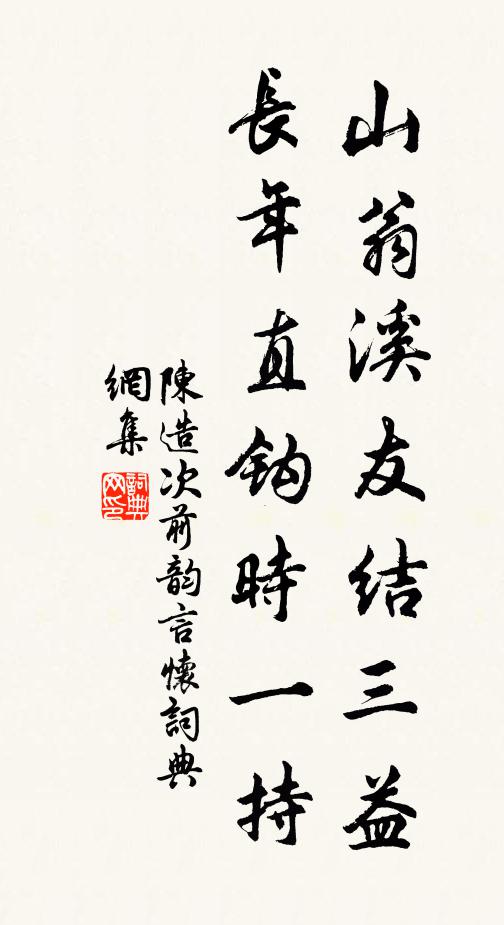 山翁溪友结三益
長年直鈎時一持
陳造次前韵言懷詞典
網集
詞典网印